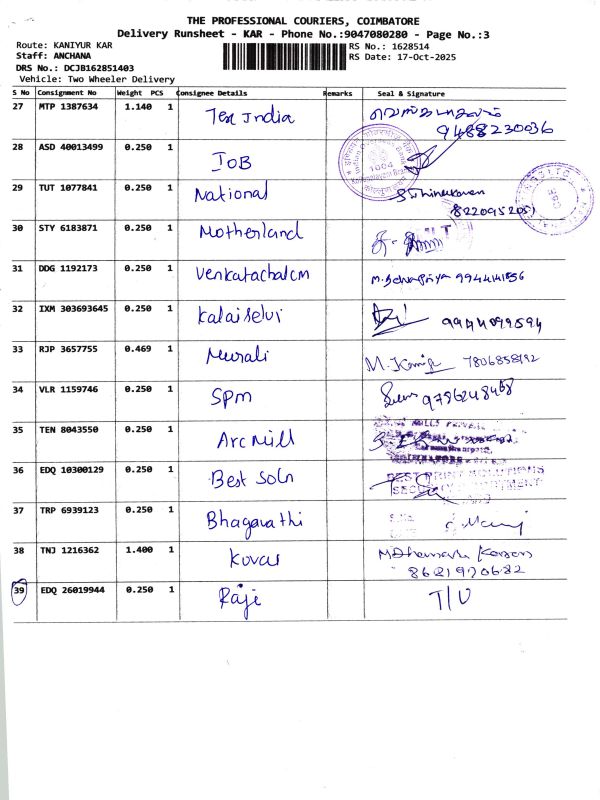 THE PROFESSIONAL COURIERS, COIMBATORE
Delivery Runsheet - KAR - Phone No.:9047080280 - Page No.:3
Route: KANIYUR KAR RS No.: 1628514
Staff: ANCHANA RS Date: 17-Oct-2025
DRS No.: DCJB162851403
Vehicle: Two Wheeler Delivery
S No Consignment No Weight PCS Consignee Details Remarks Seal & Signature
27 MTP 1387634 1.140 1 Tex India
9488230036
28 ASD 40013499 0.250 1 IOB
29 TUT 1077841 0.250 1 National
8220952051
30 STY 6183871 0.250 1 Motherland
31 DDG 1192173 0.250 1 Venkatachalam 9944141856
32 IXM 303693645 0.250 1 Kalaiselvi 9944099594
33 RJP 3657755 0.469 1 Murali 7806858192
34 VLR 1159746 0.250 1 SPM 9786248468
35 TEN 8043550 0.250 1 Arc Mill
36 EDQ 10300129 0.250 1 Best Soln
BEST PRINT SOLUTIONS
SECURITY DEPARTMENT
37 TRP 6939123 0.250 1 Bhagavathi
38 TNJ 1216362 1.400 1 Kovai
8621970682
39 EDQ 26019944 0.250 1 Raji T/U